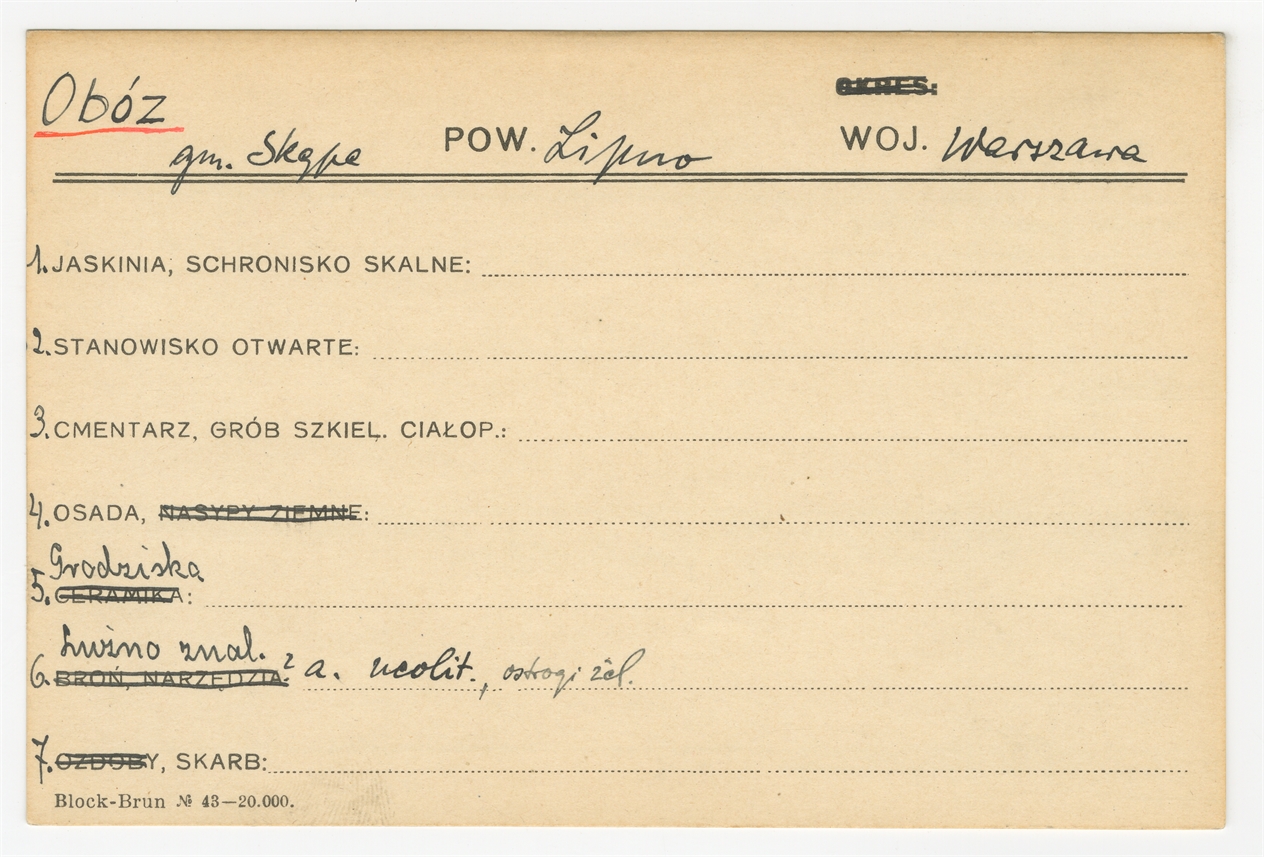 Obóz OKRES:
gm. Skąpe POW. Lipno WOJ. Warszawa
1. JASKINIA, SCHRONISKO SKALNE:
2. STANOWISKO OTWARTE:
3. CMENTARZ, GRÓB SZKIEL. CIAŁOP.:
4. OSADA, NASYPY ZIEMNE:
Grodziska
5. CERAMIKA:
Luźno znal.
6. BROŃ, NARZĘDZIA: 2 a. neolit., ostrogi żel.
7. OZDOBY, SKARB:
Block-Brun № 43—20.000.